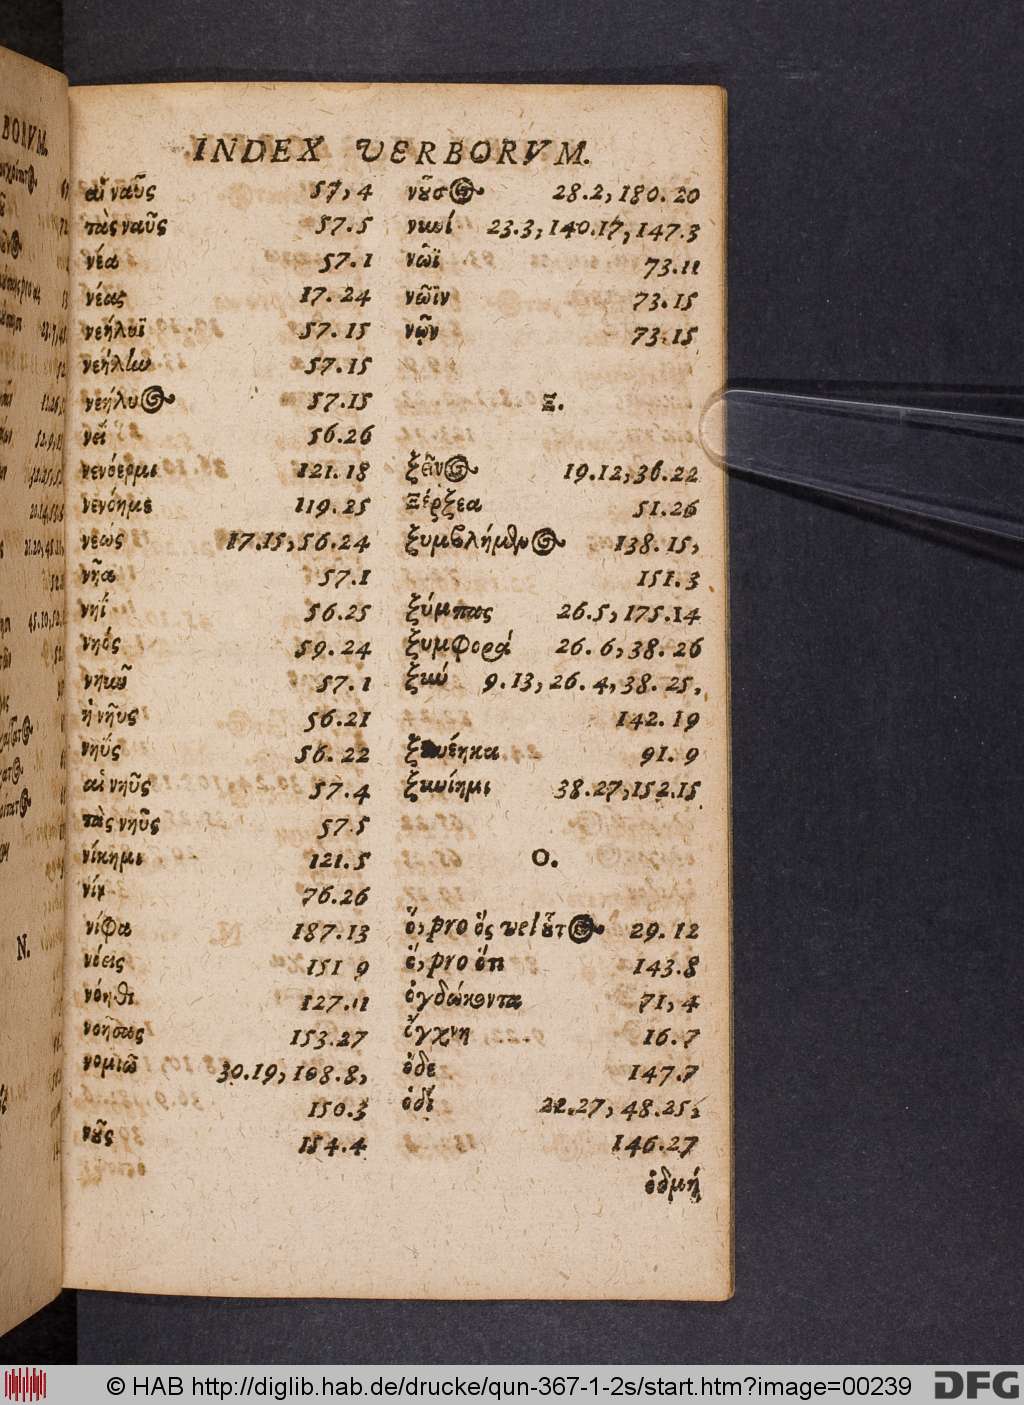 INDEX VERBORVM.
αἱ ναῦς 57,4
τὰς ναῦς 57.5
νέα 57.1
νέας 17.24
νεήλυϊ 57.15
νεήλυν 57.15
νεήλυος 57.15
νεΐ 56.26
νενόερμι 121.18
νενόημε 119.25
νεώς 17.15, 56.24
νῆα 57.1
νηΐ 56.25
νηός 59.24
νηῦ 57.1
ἡ νῆυς 56.21
νηΰς 56.22
αἱ νηῦς 57.4
τὰς νηῦς 57.5
νίκημι 121.5
νίν 76.26
νίφα 187.13
νόεις 151 9
νόηθι 127.11
νοήσως 153.27
νομιῶ 30.19, 108.8,
150.3
νοῦς 154.4
νοῦσος 28.2, 180.20
νυνί 23.3, 140.17, 147.3
νῶϊ 73.11
νῶϊν 73.15
νῷν 73.15
Ξ.
ξεῖνος 19.12, 36.22
Ξέρξεα 51.26
ξυμβλήμενος 138.15,
151.3
ξύμπας 26.5, 175.14
ξυμφορά 26.6, 38.26
ξύν 9.13, 26.4, 38.25,
142.19
ξυνέηκα 91.9
ξυνίημι 38.27, 152.15
Ο.
ὅ, pro ὅς vel οὗτος 29.12
ὅ, pro ὅτι 143.8
ὀγδώκοντα 71,4
ὄγχνη 16.7
ὅδε 147.7
ὁδί 22.27, 48.25,
146.27
ὀδμή
© HAB http://diglib.hab.de/drucke/qun-367-1-2s/start.htm?image=00239
DFG